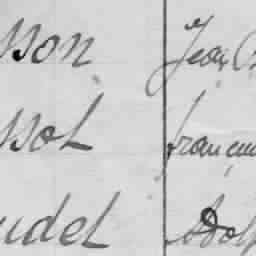 sson Jean
ssot françois
udel Adolp